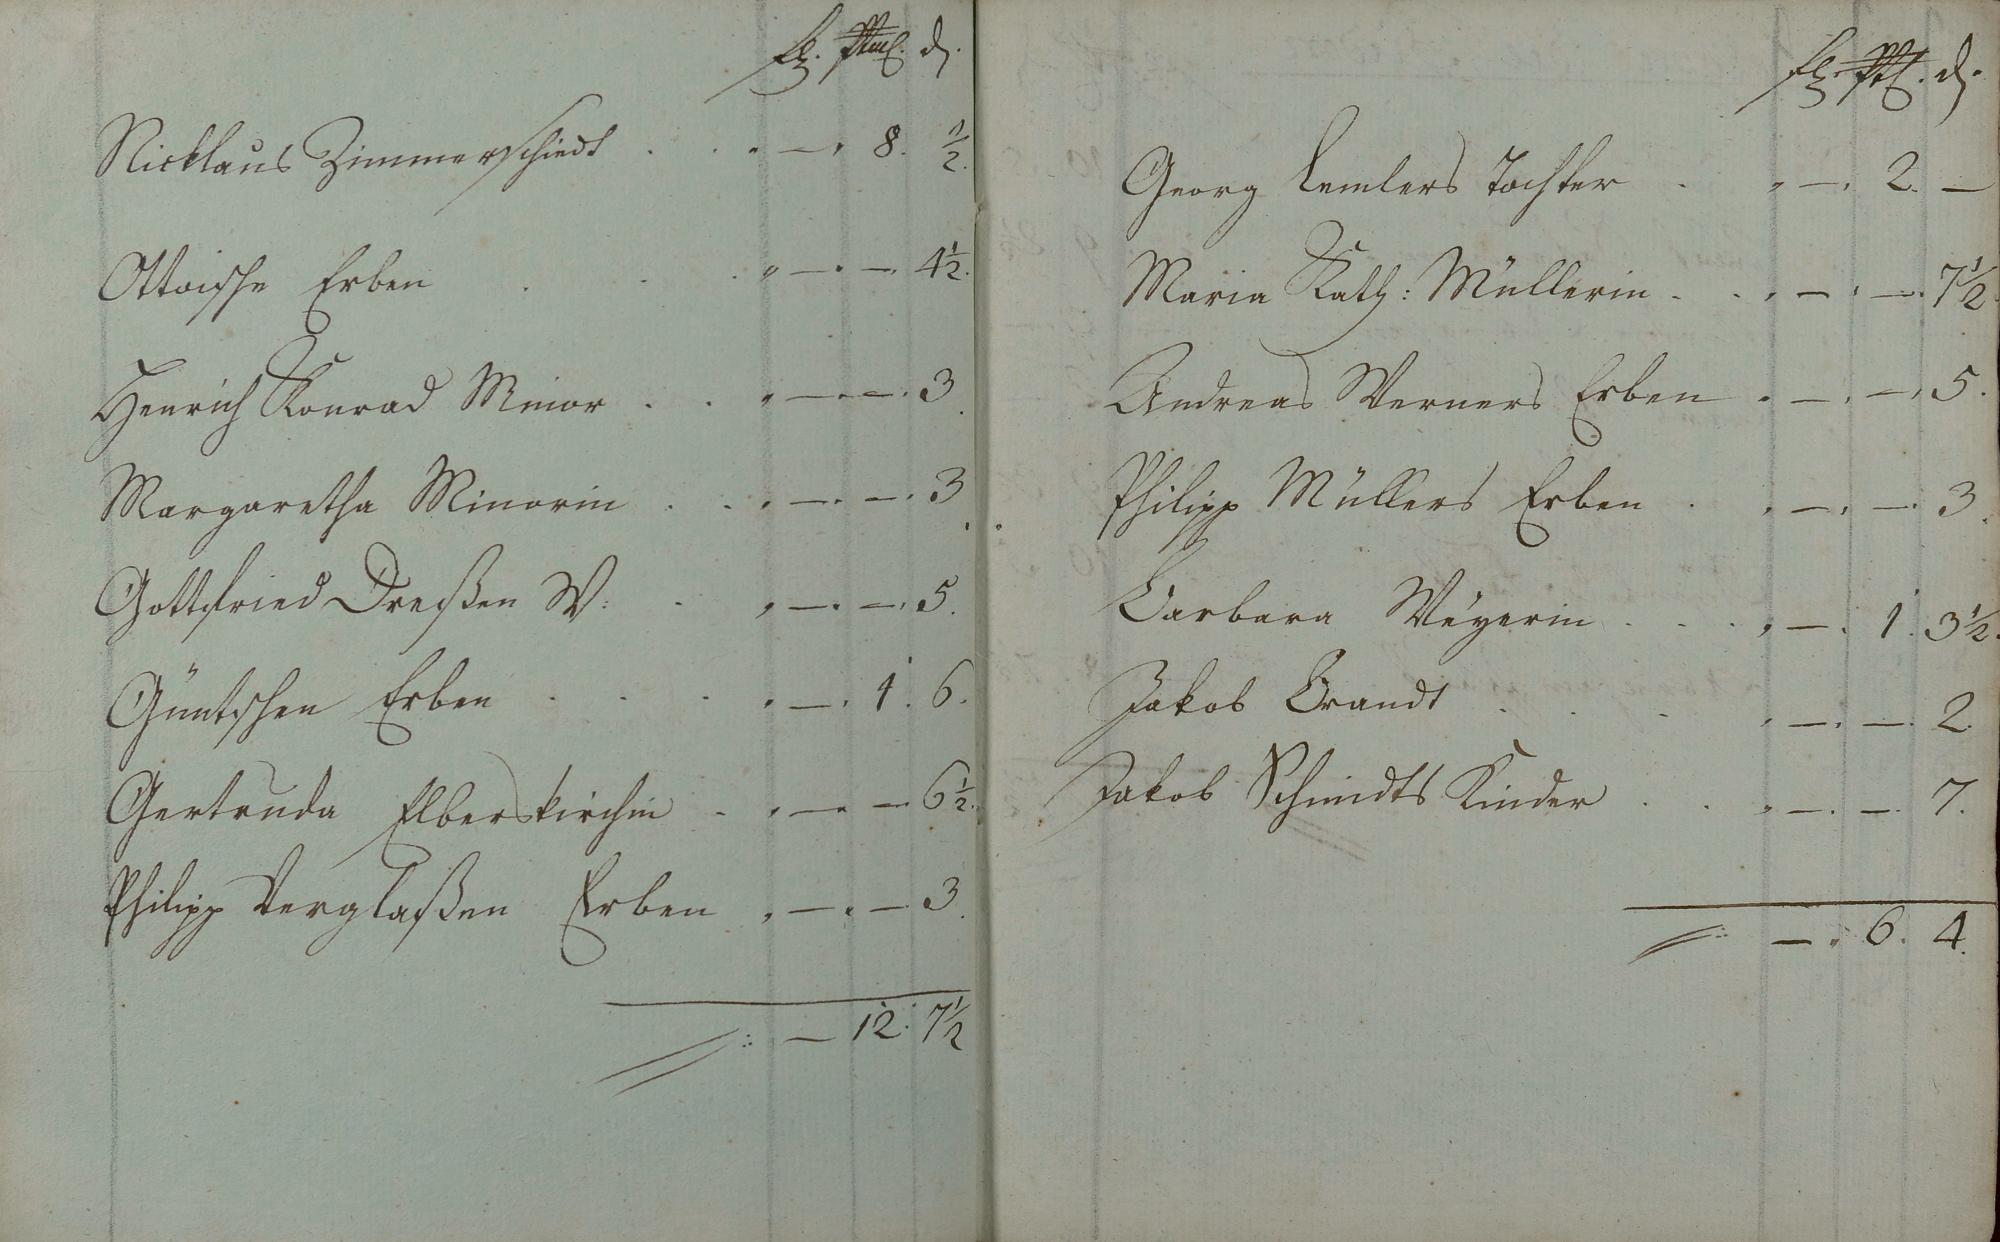 fl. d.
Nicklaus Zimmerschiedt . . . — . 8. ½.
Ottoische Erben . . . . — . — . 4½.
Henrich Konrad Minor . . . — . — . 3.
Margaretha Minorin . . . — . — . 3.
Gottfried Dreßen W: . . — . — . 5.
Güntschen Erben . . . . — . 1. 6.
Gertruda Elberskirchin . . — . — 6½.
Philipp Verglaßen Erben . — . — 3.
— 12. 7½
fl. d.
Georg Lemlers Tochter . . — . 2. —
Maria Kath: Müllerin . . . — . — . 7½
Andreas Werners Erben . — . — . 5.
Philipp Müllers Erben . . — . — . 3.
Barbara Weyerin . . . . — . 1. 3½.
Jakob Brandt . . . . — . — . 2.
Jakob Schmidts Kinder . . . — . — . 7.
— . 6. 4.